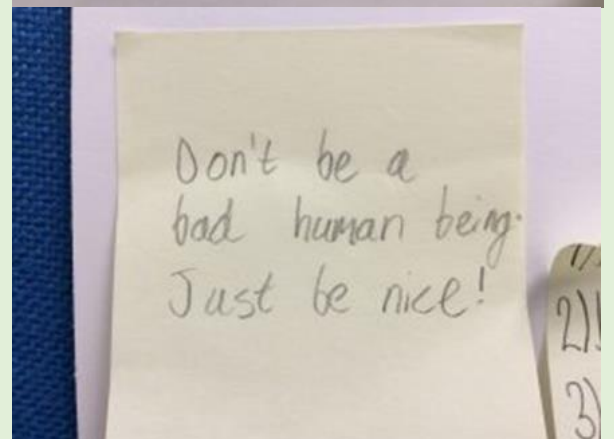 Don't be a
bad human being.
Just be nice!
2)
3)